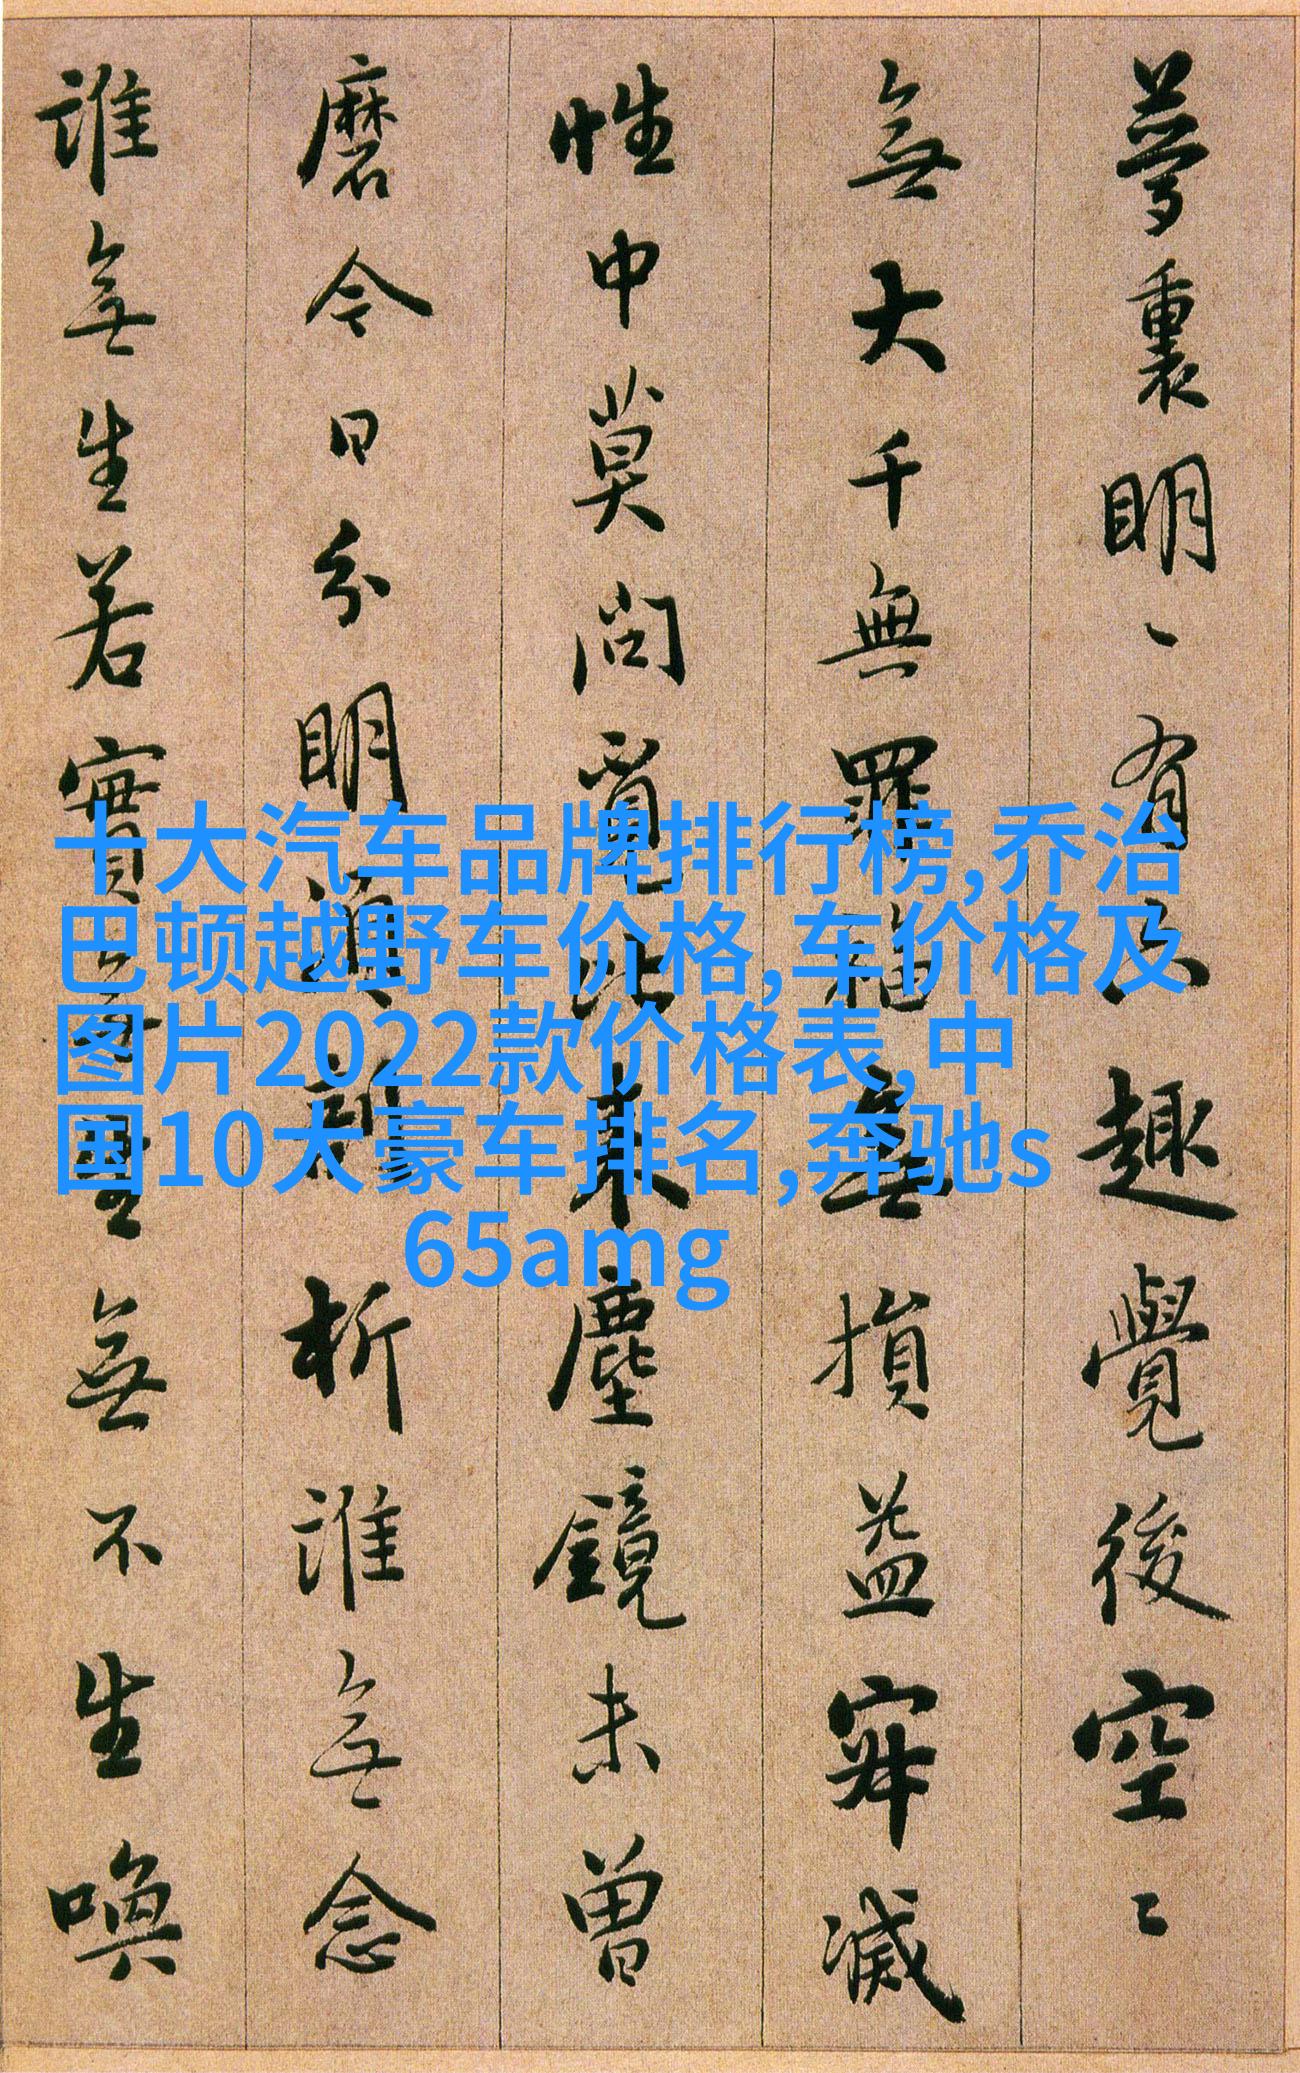 夢裏明、有六趣覺後空〻
無大千無罪福無損益寂滅
性中莫問覓比來塵鏡未曾
磨今日分明須剖析誰無念
誰無生若實無生無不生喚
十大汽车品牌排行榜,乔治
巴顿越野车价格,车价格及
图片2022款价格表,中
国10大豪车排名,奔驰s
65amg